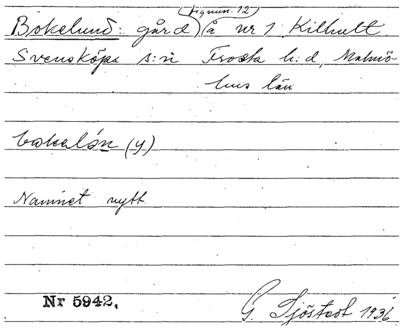 (sign. 12)
Bokelund: gård å nr 1 Kilhult
Svensköps s:n Frosta h:d, Malmö-
hus län
bokelón (y)
Namnet nytt
Nr 5942.
G. Sjöstedt 1936